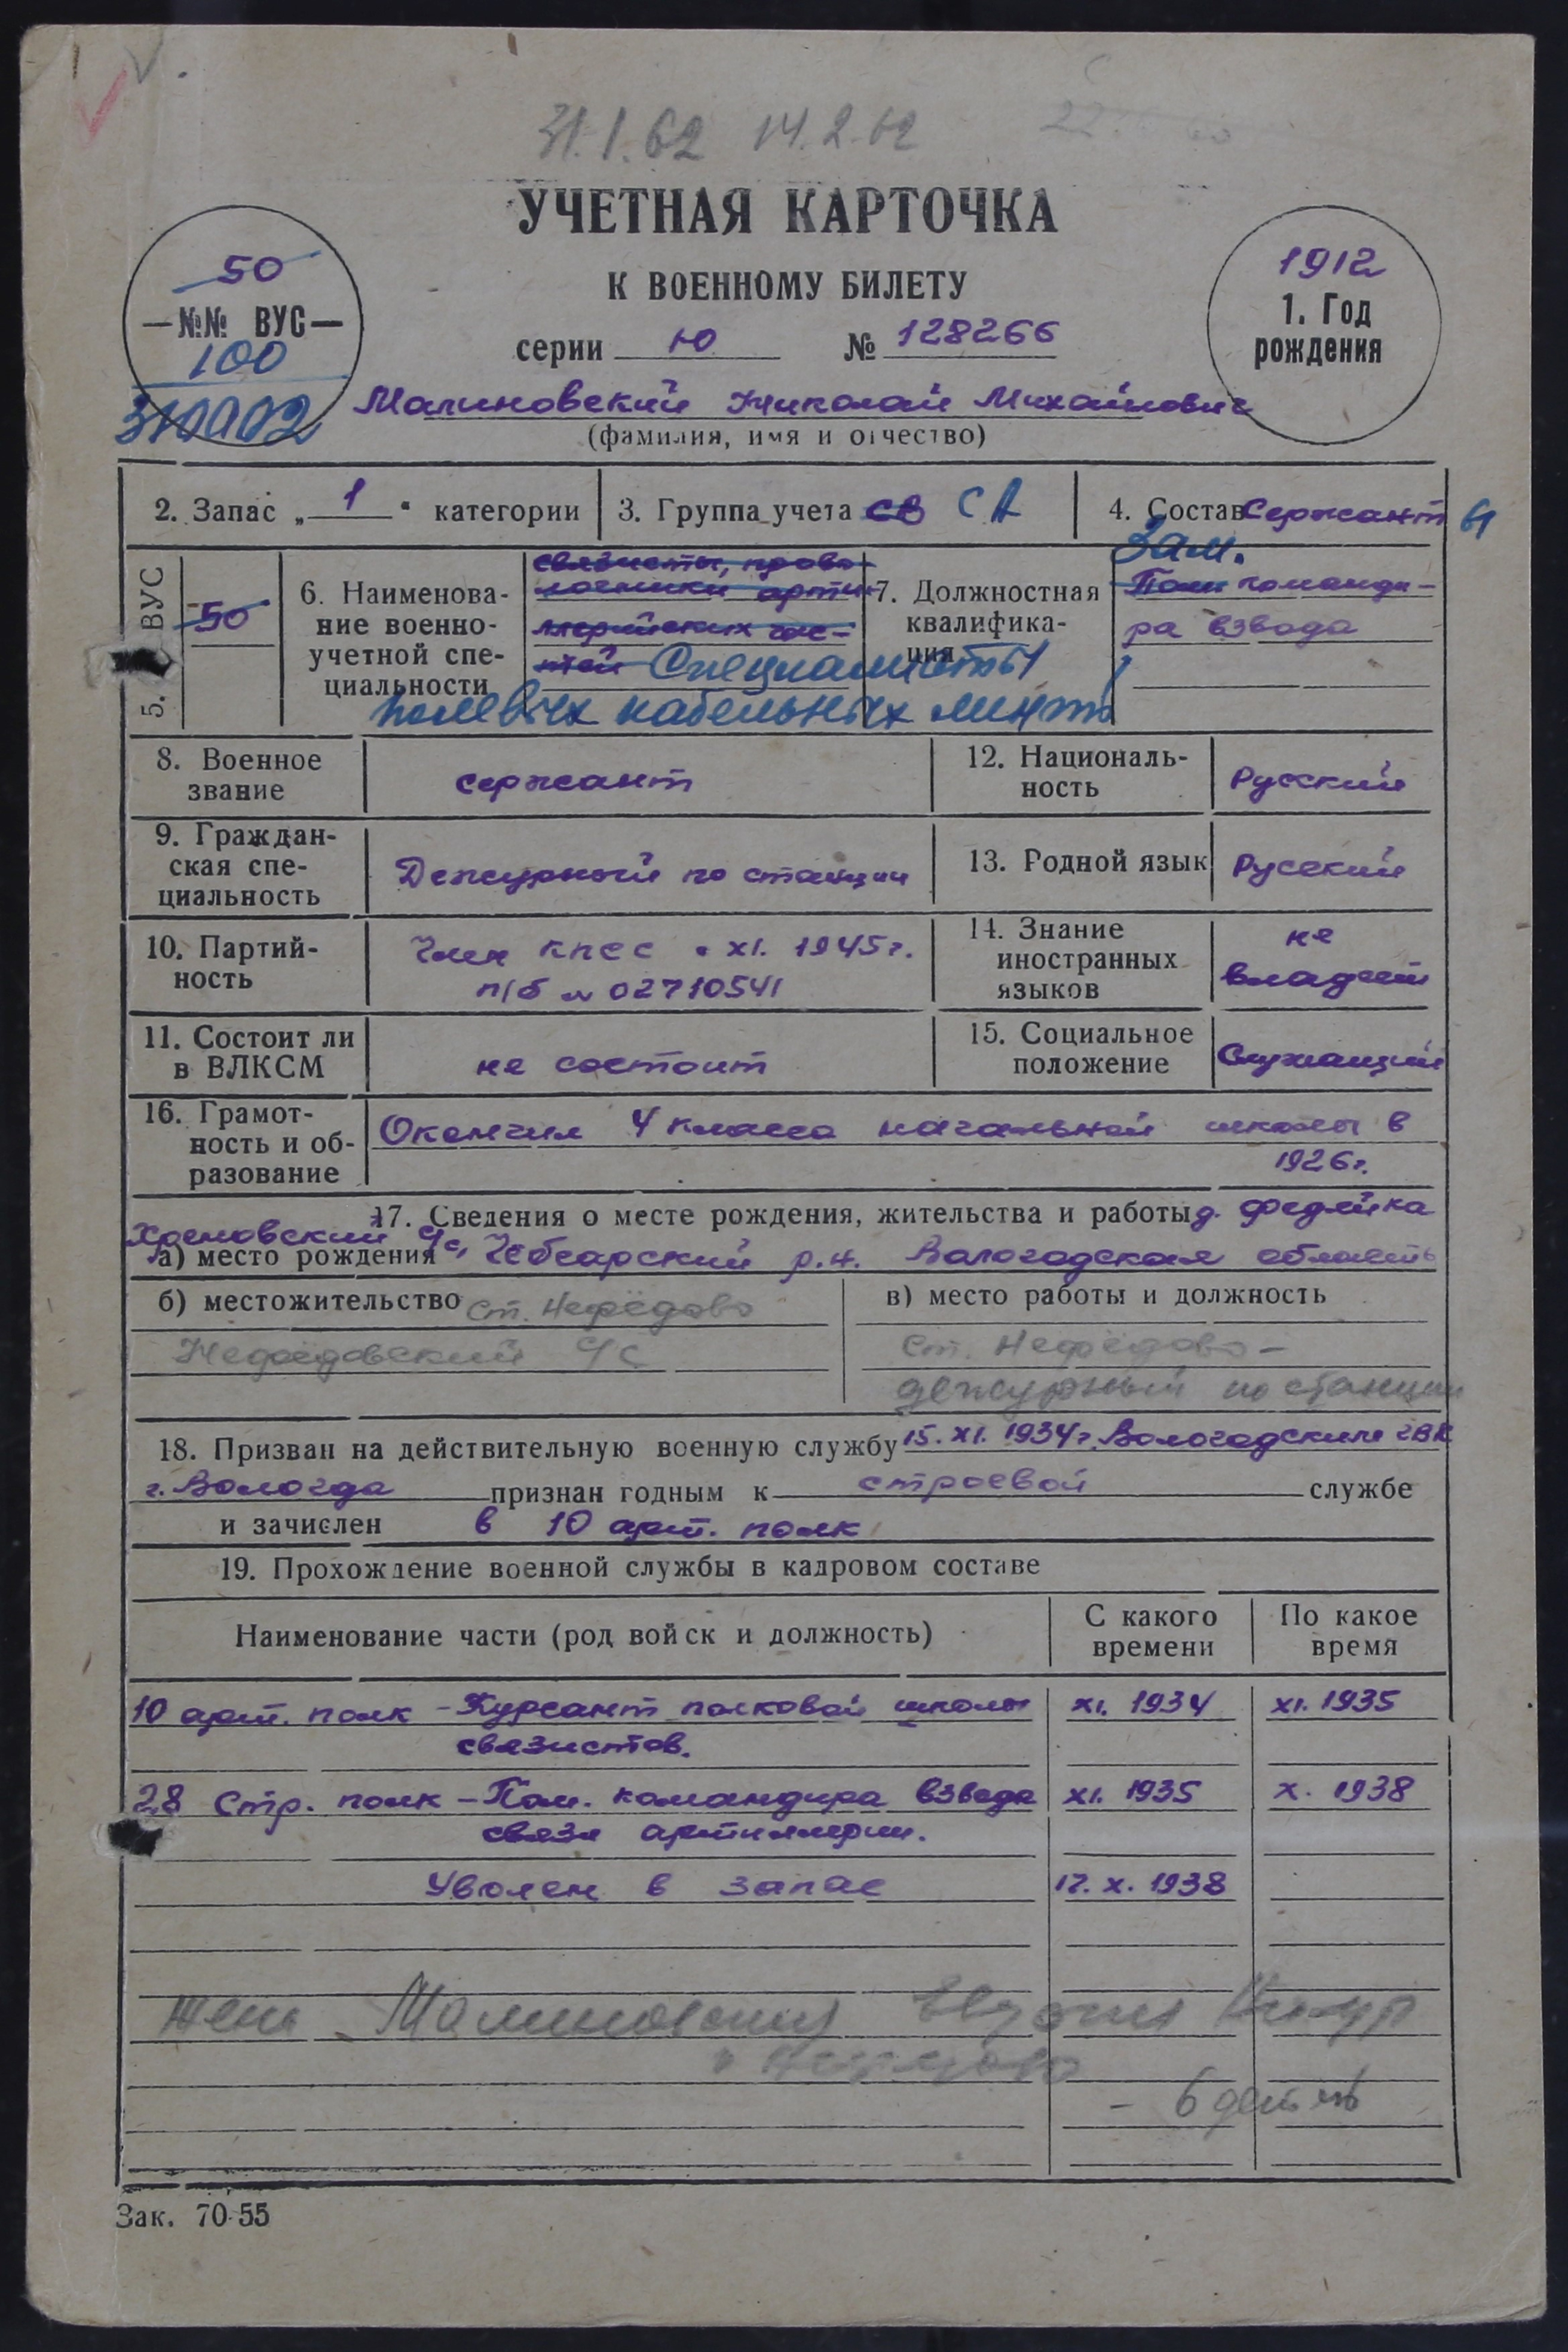 31.1.62 14.2.62
УЧЕТНАЯ КАРТОЧКА
К ВОЕННОМУ БИЛЕТУ
серии Ю № 128266
50
—№№ ВУС—
100
310002
1912
1. Год
рождения
Малиновский Николай Михайлович
(фамилия, имя и отчество)
2. Запас „ 1 “ категории
3. Группа учета СВ СА
4. Состав Сержант
5. ВУС
50
6. Наименова-
ние военно-
учетной спе-
циальности
связисты, прово-
лочники арти-
ллерийских час-
тей Специалисты
полевых кабельных линий
7. Должностная
квалифика-
ция
Зам.
Пом команди-
ра взвода
8. Военное
звание
сержант
12. Националь-
ность
Русский
9. Граждан-
ская спе-
циальность
Дежурный по станции
13. Родной язык
Русский
10. Партий-
ность
Член КПСС с XI. 1945 г.
п/б № 02710541
14. Знание
иностранных
языков
не
владеет
11. Состоит ли
в ВЛКСМ
не состоит
15. Социальное
положение
Служащий
16. Грамот-
ность и об-
разование
Окончил 4 класса начальной школы в
1926 г.
17. Сведения о месте рождения, жительства и работы д. Федейка
с/с,
а) место рождения Чебсарский р.н. Вологодская область
б) местожительство ст. Нефёдово
Нефёдовский с/с
в) место работы и должность
ст. Нефёдово -
дежурный по станции
18. Призван на действительную военную службу 15. XI. 1934 г. Вологодским ГВК
г. Вологда признан годным к строевой службе
и зачислен в 10 арт. полк
19. Прохождение военной службы в кадровом составе
Наименование части (род войск и должность)
С какого
времени
По какое
время
10 арт. полк - Курсант полковой школы XI. 1934 XI. 1935
связистов.
28 Стр. полк - Пом. командира взвода XI. 1935 X. 1938
связи артиллерии.
Уволен в запас 17. X. 1938
жена - Малиновская
- 6 детей
Зак. 70-55